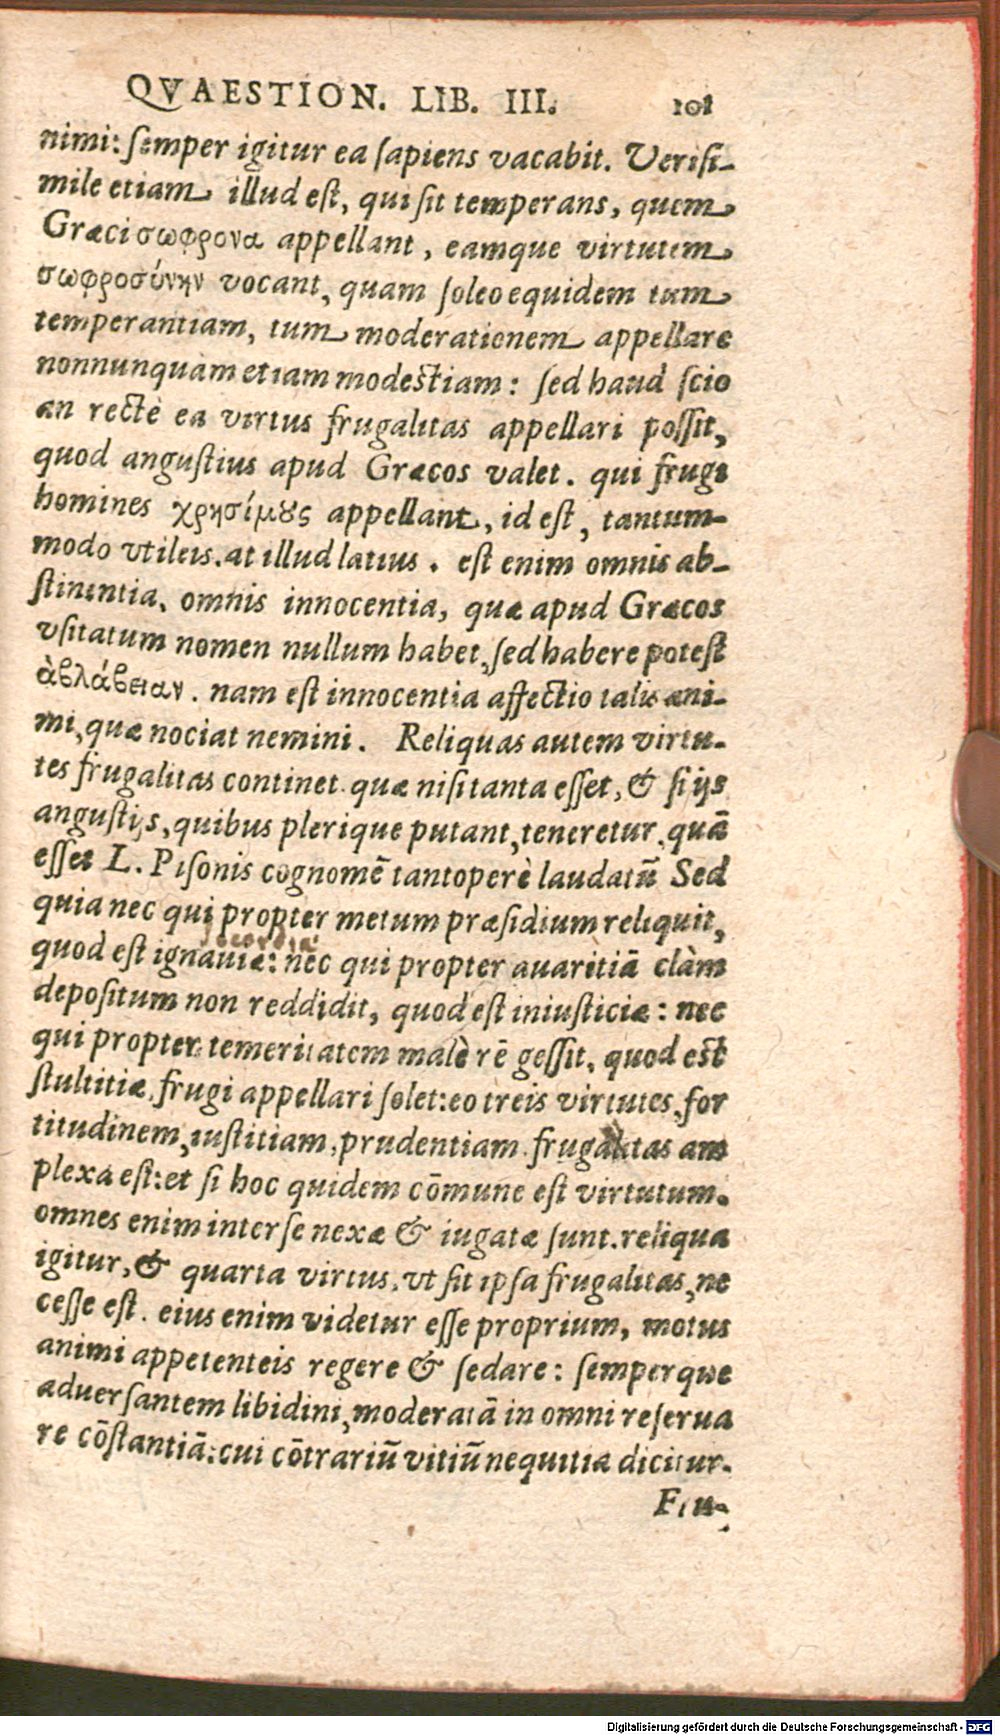 QVAESTION. LIB. III. 101
nimi: ſemper igitur ea ſapiens vacabit. Veriſi-
mile etiam illud eſt, qui ſit temperans, quem
Græci σωφρονα appellant, eamque virtutem
σωφροσύνην vocant, quam ſoleo equidem tum
temperantiam, tum moderationem appellare
nonnunquam etiam modeſtiam: ſed haud ſcio
an rectè ea virtus frugalitas appellari poſſit,
quod anguſtius apud Græcos valet. qui frugi
homines χρησίμȣς appellant, id eſt, tantum-
modo vtileis. at illud latius. eſt enim omnis ab-
ſtinentia, omnis innocentia, quæ apud Græcos
vſitatum nomen nullum habet, ſed habere poteſt
ἀβλάβειαν. nam eſt innocentia affectio talis ani-
mi, quæ nociat nemini. Reliquas autem virtu-
tes frugalitas continet. quæ niſi tanta eſſet, & ſi ijs
anguſtijs, quibus plerique putant, teneretur, quā
eſſet L. Piſonis cognomē tantoperè laudatū Sed
quia nec qui propter metum præſidium reliquit,
socordia
quod eſt ignauiæ: nec qui propter auaritiā clàm
depoſitum non reddidit, quod eſt iniuſticiæ: nec
qui propter temeritatem malè rē geſſit, quod eſt
ſtultitiæ, frugi appellari ſolet: eo treis virtutes, for
titudinem, iuſtitiam, prudentiam frugalitas am
plexa eſt: et ſi hoc quidem cōmune eſt virtutum.
omnes enim inter ſe nexæ & iugatæ ſunt. reliqua
igitur, & quarta virtus, vt ſit ipſa frugalitas, ne
ceſſe eſt. eius enim videtur eſſe proprium, motus
animi appetenteis regere & ſedare: ſemperque
aduerſantem libidini, moderatā in omni reſerua
re cōſtantiā: cui cōtrariū vitiū nequitia dicitur.
Fru-
Digitalisierung gefördert durch die Deutsche Forschungsgemeinschaft - DFG